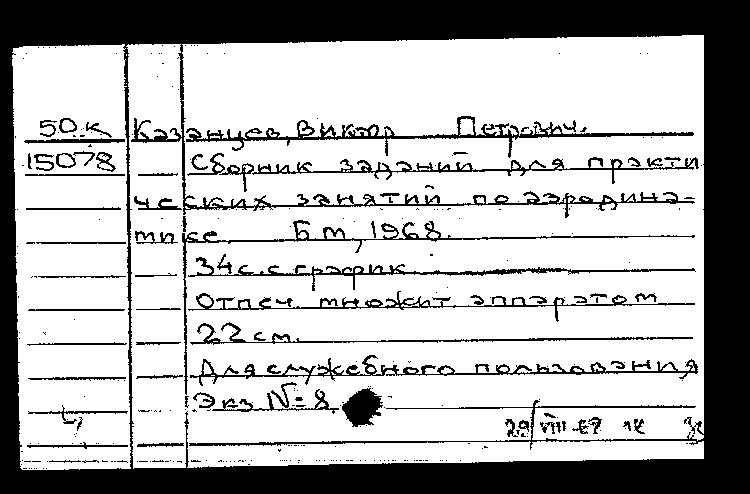 50.к Казанцев, Виктор Петрович.
15078 Сборник заданий для практи
ческих занятий по аэродина-
мике. Б м, 1968.
34с. с график.
Отпеч. множит. аппаратом
22 см.
Для служебного пользования
Экз №8.
29/VIII-69 1к